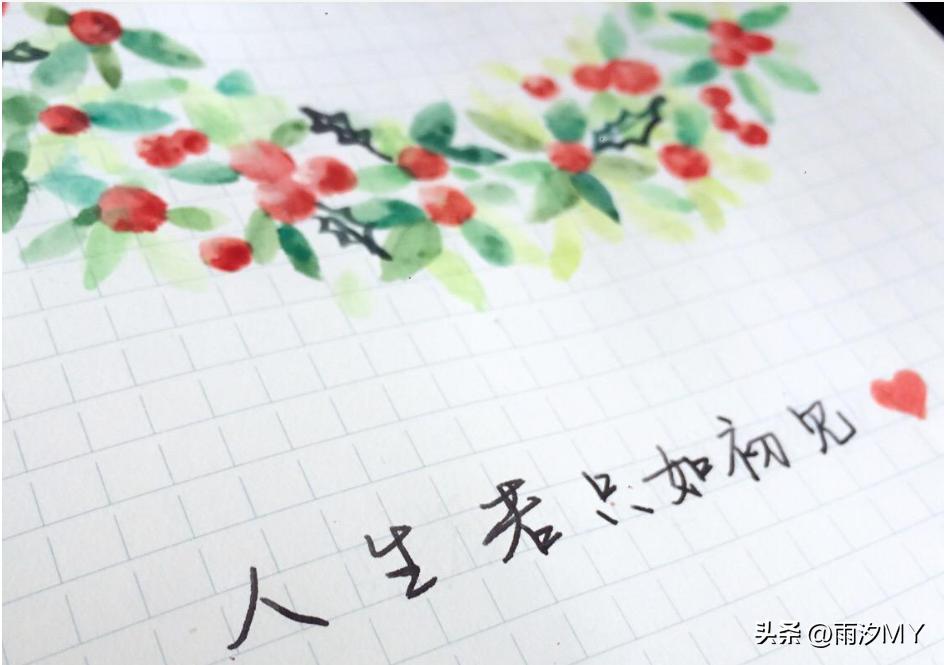 人生若只如初见
头条 @雨汐MY